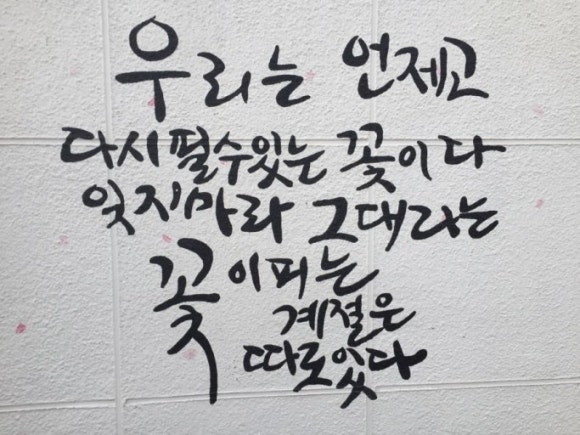 우리는 언제고
다시 필수있는 꽃이다
잊지마라 그대라는
꽃이피는
계절은
따로있다